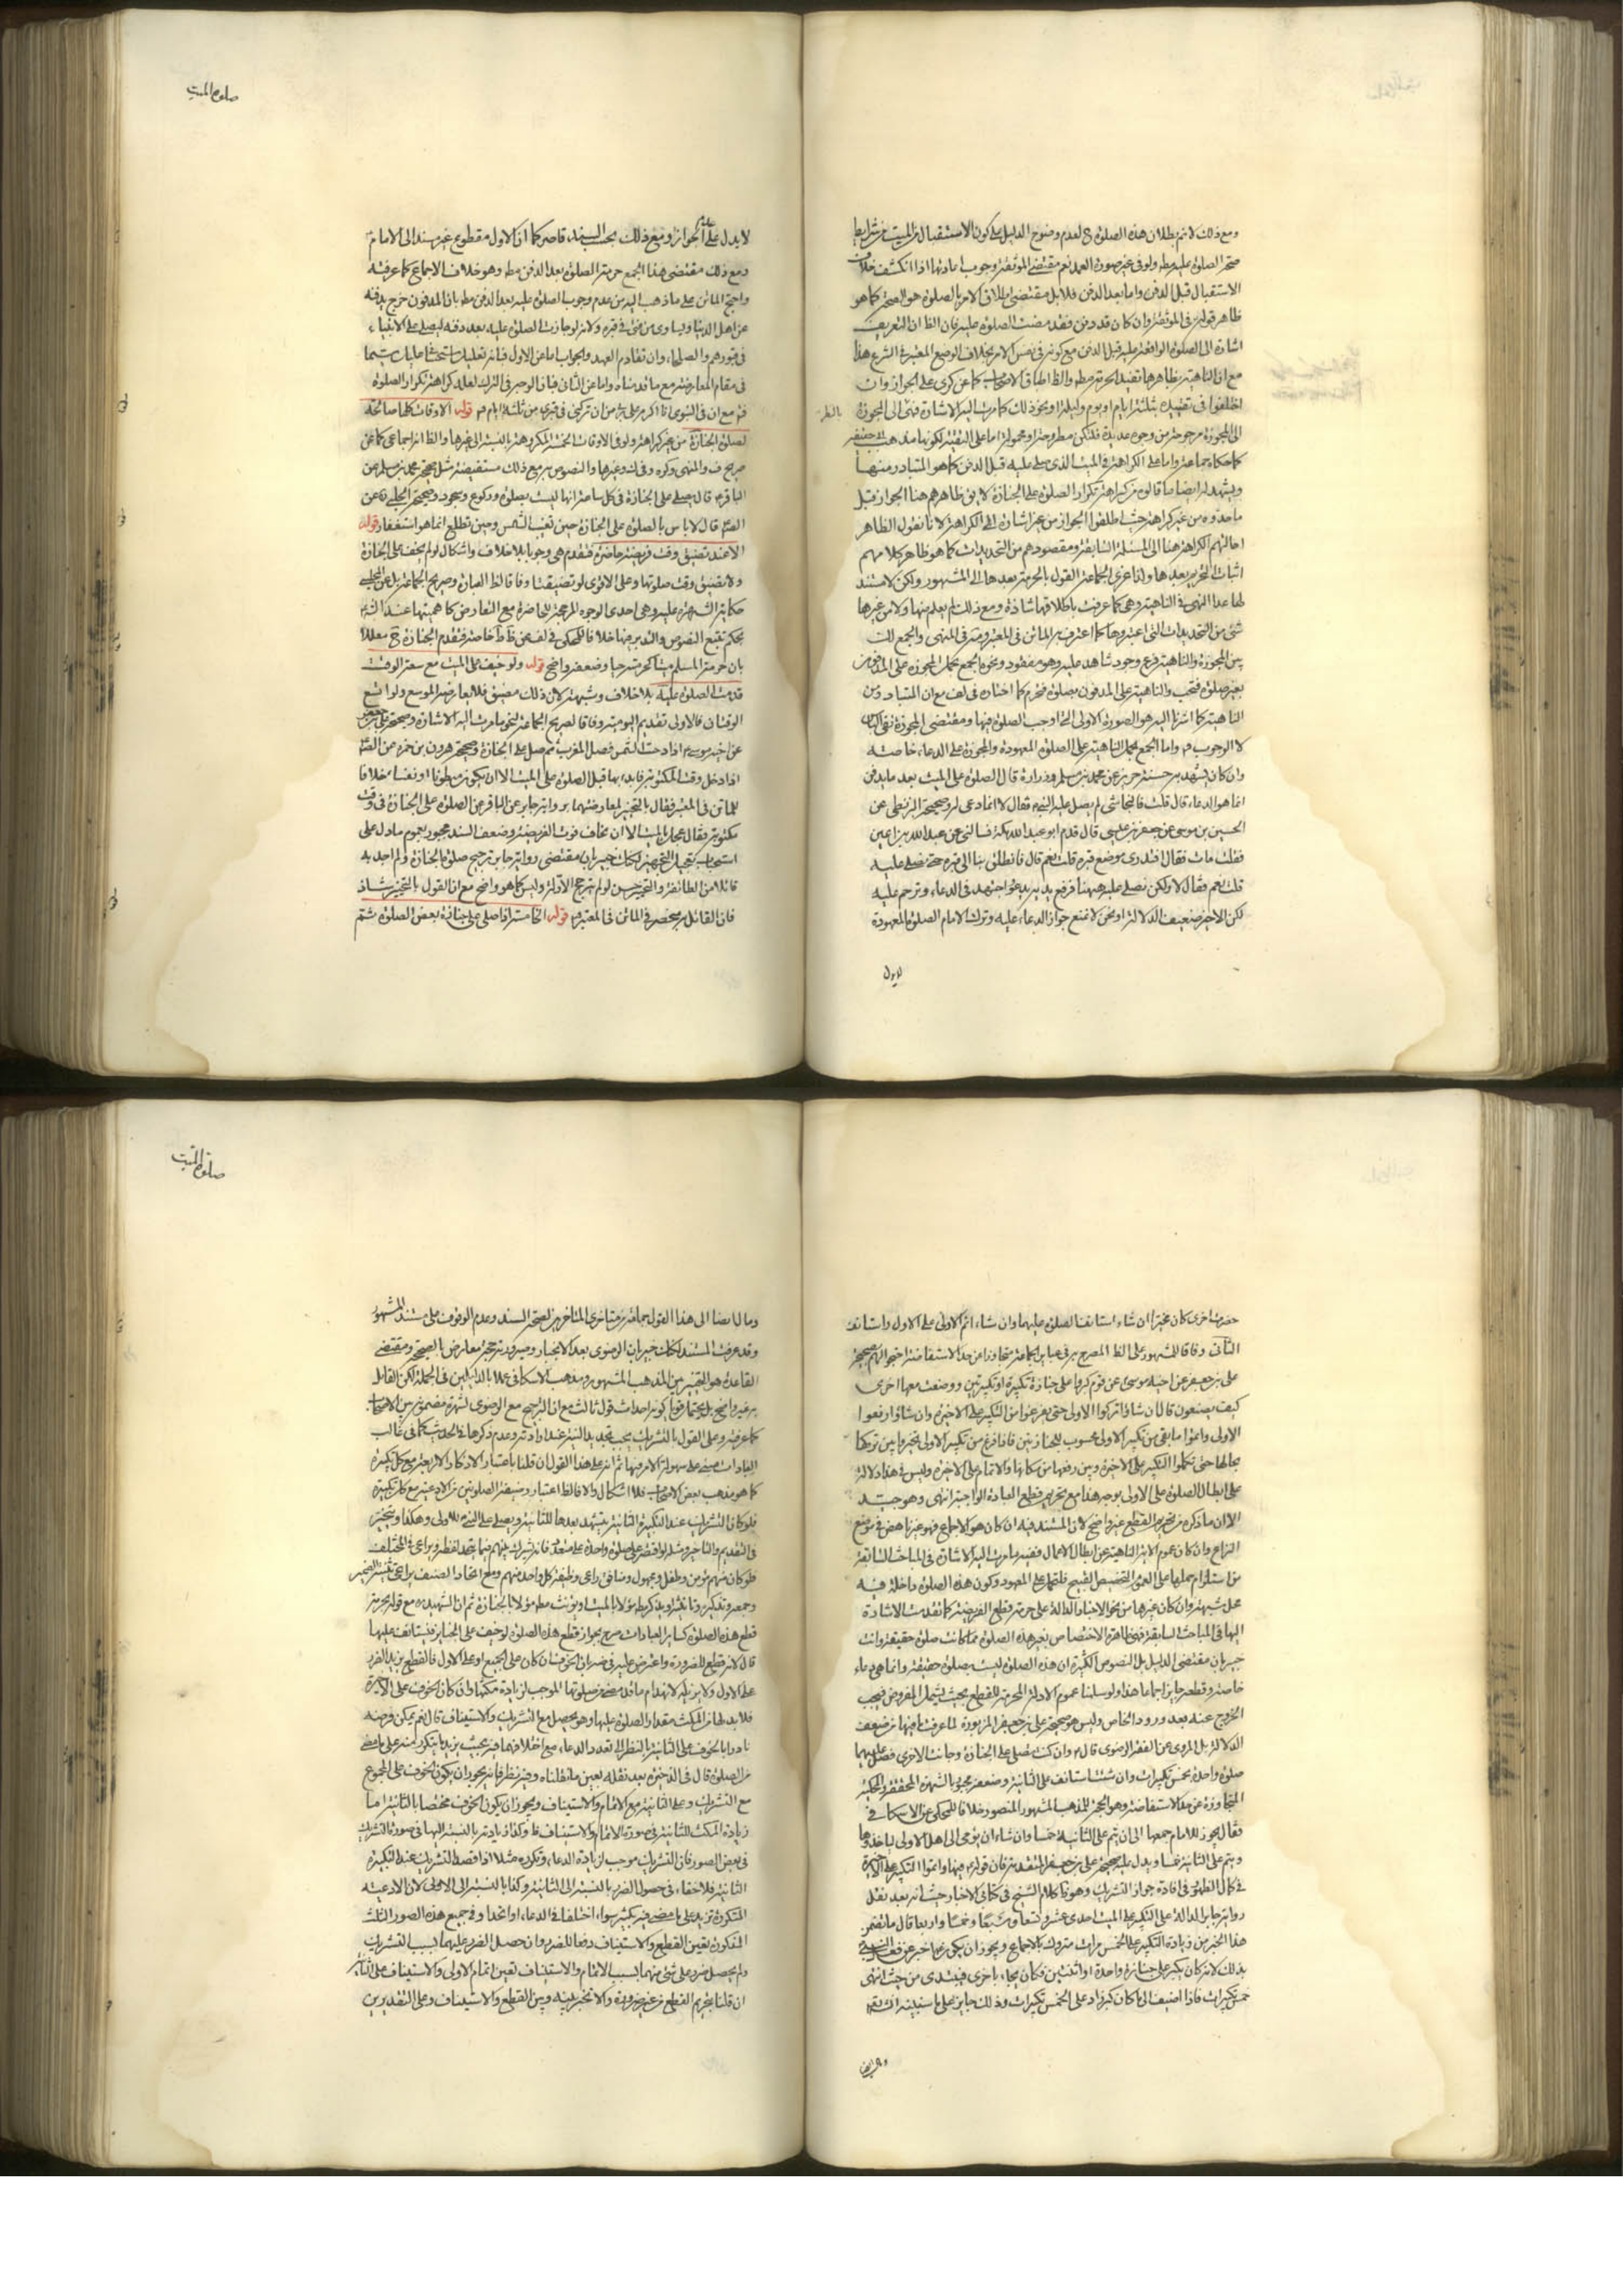 صلوة الميت
ومع ذلك لا يتم بطلان هذه الصلوة ح لعدم وضوح الدليل على كون الاستقبال بالميت من شرايط
صحة الصلوة عليه مطه ولو في غير صورة العمد نعم مقتضى الموثقة وجوب اعادتها اذا انكشف خلاف
الاستقبال قبل الدفن واما بعد الدفن فلا بل مقتضى اطلاق الامر بالصلوة هو الصحة كما هو
ظاهر قوله في الموثقة وان كان قد دفن فقد مضت الصلوة عليه فان الظ ان التعريف
اشارة الى الصلوة الواقعة عليه قبل الدفن مع كونه في نفس الامر بخلاف الوضع المعتبر في الشرع هذا
مع ان الناهية بظاهرها تفيد الحرمة مطه والظ اطباق الاصحاب كما عن كرى على الجواز وان
اختلفوا في تقييده بثلثة ايام او بيوم وليلة او نحو ذلك كما مرت اليه الاشارة فهي الى المجوزة
الى المجوزة مرجوحة من وجوه عديدة فلتكن مطروحة او محمولة اما على التقية لكونها مذهب ابي حنيفة
كما حكاه جماعة واما على الكراهة في الميت الذي صلى عليه قبل الدفن كما هو المتبادر منها
ويشهد له ايضا ما قالوه من كراهة تكرار الصلوة على الجنازة لا يق ظاهرهم هنا الجواز قبل
ما حدوه من غير كراهة حيث اطلقوا الجواز من غير اشارة الى الكراهة لانا نقول الظاهر
احالتهم الكراهة هنا الى المسئلة السابقة ومقصودهم من التحديدات كما هو ظاهر كلامهم
اثبات التحريم بعدها ولذا عزى الجماعة القول بالحرمة بعدها الى المشهور ولكن لا مستند
لها عدا النهي في الناهية وهي كما عرفت باطلاقها شاذة ومع ذلك لم يعلم منها ولا من غيرها
شئ من التحديدات التي اعتبروها كما اعترف به الماتن في المعتبر وغيره في المنتهى والجمع
بين المجوزة والناهية فرع وجود شاهد عليه وهو مفقود ونحوه الجمع بحمل المجوزة على المدفون
بغير صلوة فتجب والناهية على المدفون بصلوة فتحرم كما اختاره في لف مع ان المتبادر من
الناهية كما اشرنا اليه هو الصورة الاولى التي اوجب الصلوة فيها ومقتضى المجوزة نفي الباس
لا الوجوب فه واما الجمع بحمل الناهية على الصلوة المعهودة والمجوزة على الدعاء خاصة
وان كان يشهد به حسنة حريز عن محمد بن مسلم وزرارة قال الصلوة على الميت بعد ما يدفن
انما هو الدعاء قال قلت فالنجاشي لم يصل عليه النبي ص فقال لا انما دعى له وصحيحة البزنطي عن
الحسين بن موسى عن جعفر بن عيسى قال قدم ابو عبد الله ع مكة فسالني عن عبد الله بن اعين
فقلت مات فقال افتدري موضع قبره قلت نعم قال فانطلق بنا الى قبره حتى نصلي عليه
قلت نعم فقال لا ولكن نصلي عليه ههنا فرفع يديه يدعو اجتهد في الدعاء وترحم عليه
لكن الاخير ضعيف الدلالة او نحن لا نمنع جواز الدعاء عليه وترك الامام الصلوة المعهودة
لا يدل
لا يدل على عدم الجواز ومع ذلك بحسب السند قاصر كما ان الاول مقطوع غير مسند الى الامام
ومع ذلك مقتضى هذا الجمع حرمة الصلوة بعد الدفن مطه وهو خلاف الاجماع كما عرفته
واحتج الماتن على ما ذهب اليه من عدم وجوب الصلوة عليه بعد الدفن مطه بان المدفون خرج بدفنه
عن اهل الدنيا وساوى من فني في قبره ولانه لو جازت الصلوة عليه بعد دفنه ليصلى على الانبياء
في قبورهم والصلحاء وان تقادم العهد والجواب اما عن الاول فبانه تعليل
في مقام المعارضة مع ما قدمناه واما عن الثاني فبان الوجه في الترك لعله كراهة تكرار الصلوة
فه مع ان في النبوي انا اكرم على ربي من ان تركني في قبري من ثلثة ايام فه قوله الاوقات كلها صالحة
لصلوة الجنازة من غير كراهة ولو في الاوقات الخمسة المكروهة بالنسبة الى غيرها والظ انه اجماعي كما عن
صريح ف والمنتهى وكره وفي ك وغيرها والنصوص به مع ذلك مستفيضة مثل صحيحة محمد بن مسلم عن
الباقر ع قال يصلى على الجنازة في كل ساعة انها ليست بصلوة ركوع وسجود وصحيحة الحلبي عن
الصه قال لا باس بالصلوة على الجنازة حين تغيب الشمس وحين تطلع انما هو استغفار قوله
الا عند تضيق وقت فريضة حاضرة فتقدم هي وجوبا بلا خلاف واشكال لو لم يخف على الجنازة
ولا يضيق وقت صلوتها وعلى الاقوى لو تضيقتا وفاقا لظ العبارة وصريح الجماعة بل عن الحلي
حكاية الشهرة عليه وهي احدى الوجوه المرجحة للحاضرة مع التعارض كاهميتها عند الشرع
بحكم تتبع النصوص والتدبر فيها خلافا للمحكي في لف عن ظ ط خاصة فتقدم الجنازة ح معللا
بان حرمة المسلم ميتا كحرمته حيا وضعفه واضح قوله ولو خيف على الميت مع سعة الوقت
قدمت الصلوة عليه بلا خلاف وشبهة لان ذلك مضيق فلا يعارضه الموسع ولو اتسع
الوقتان فالاولى تقديم اليومية وفاقا لصريح الجماعة لنحو ما مرت اليه الاشارة وصحيحة علي بن جعفر
عن اخيه موسى ع اذا وجبت الشمس فصل المغرب ثم صل على الجنازة وصحيحة هرون بن حمزة عن الصه
اذا دخل وقت المكتوبة فابدء بها قبل الصلوة على الميت الا ان يكون مبطونا او نفساء خلافا
للماتن في المعتبر فقال بالتخيير لمعارضتهما برواية جابر عن الباقر عن الصلوة على الجنازة في وقت
مكتوبة فقال عجل بالميت الا ان تخاف فوت الفريضة وضعف السند مجبور بعموم ما دل على
استحباب تعجيل التجهيز لكنك خبير بان مقتضى رواية جابر ترجيح صلوة الجنازة ولم اجد به
قائلا من الطائفة والتخيير حسن لو لم يترجح الاولة وليس كما هو واضح مع ان القول بالتخيير شاذ
فان القائل به منحصر في الماتن في المعتبر فه قوله الخامسة اذا صلى على جنازة بعض الصلوة ثم
صلوة الميت
حضرت اخرى كان مخيرا ان شاء استانف الصلوة عليهما وان شاء اتم الاولى على الاول واستانف
الثاني وفاقا للمشهور على الظ المصرح به في عبائر الجماعة متجاوزا عن حد الاستفاضة احتجوا لهم بصحيحة
علي بن جعفر عن اخيه موسى ع عن قوم كبروا على جنازة تكبيرة او تكبيرتين ووضعت معها اخرى
كيف يصنعون قال ان شاؤا تركوا الاولى حتى يفرغوا من التكبير على الاخيرة وان شاؤا رفعوا
الاولى واتموا ما بقي من تكبير الاولى محسوب للجنازتين فاذا فرغ من تكبير الاولى تخير وا بين تركها
بحالها حتى يكملوا التكبير على الاخيرة وبين رفعها من مكانها والاتمام على الاخيرة وليس في هذا دلالة
على ابطال الصلوة على الاولى بوجه هذا مع تحريم قطع العبادة الواجبة انتهى وهو جيد
الا ان ما ذكره من تحريم القطع غير واضح لان المستند فيه ان كان هو الاجماع فهو غير ناهض في موضع
النزاع وان كان عموم الاية الناهية عن ابطال الاعمال ففيه ما مرت اليه الاشارة في المباحث السابقة
من استلزام حملها على العموم التخصيص القبيح فلتحمل على المعهود وكون هذه الصلوة داخلة فيه
محل شبهة وان كان غيرها من نحو الاخبار الدالة على حرمة قطع الفريضة كما تقدمت الاشارة
اليها في المباحث السابقة فهي ظاهرة الاختصاص بغير هذه الصلوة مما كانت صلوة حقيقة وانت
خبير بان مقتضى الدليل بل النصوص الكثيرة ان هذه الصلوة ليست صلوة حقيقة وانما هي دعاء
خاصة وقطعه جايز اجماعا هذا ولو سلمنا عموم الادلة المحرمة للقطع بحيث يشمل المفروض فيجب
الخروج عنه بعد ورود الخاص وليس هو صحيحة علي بن جعفر المزبورة لما عرفت ما فيها من ضعف
الدلالة بل المروى عن الفقه الرضوي قال ع وان كنت تصلي على الجنازة وجائت الاخرى فصل عليهما
صلوة واحدة بخمس تكبيرات وان شئت استانف على الثانية وضعفه مجبور بالشهرة المحققة والمحكية
المتجاوزة عن حد الاستفاضة وهو الحجة للمذهب المشهور المنصور خلافا للمحكي عن الاسكافي
فقال يجوز للامام جمعهما الى ان يتم على الثانية خمسا وان شاء ان يومي الى اهل الاولى لياخذوها
ويتم على الثانية خمسا ويدل عليه صحيحة علي بن جعفر المتقدمة فان قوله ع فيها واتموا التكبير على الاخيرة
في كمال الظهور في افادة جواز التشريك وهو ظ كلام الشيخ في كتابي الاخبار حيث انه بعد نقل
رواية جابر الدالة على التكبير على الميت احدى عشر وتسعا وسبعا وخمسا واربعا قال ما تضمن
هذا الخبر من زيادة التكبير على الخمس مرات متروك بالاجماع ويجوز ان يكون ع اخبر عن فعل النبي ص
بذلك لانه كان يكبر على جنازة واحدة او اثنتين فكان يجاء باخرى فيبتدي من حيث انتهى
خمس تكبيرات فاذا اضيف الى ما كان كبر زاد على الخمس تكبيرات وذلك جايز على ما سنبينه انتهى
ومال ايضا
ومال ايضا الى هذا القول جماعة من متاخري المتاخرين لصحة السند وعدم الوقوف على مستند المشهور
وقد عرفت المستند لكنك خبير بان الرضوي بعد الانجبار وصيرورته حجة معارض بالصحيحة ومقتضى
القاعدة هو التخيير بين المذهب المشهور ومذهب الاسكافي عملا بالدليلين في الجملة لكن القائل
به غير واضح بل يحتمل قويا كونه احداث قول ثالث مع ان الترجيح مع الرضوي لشهرة مضمونه بين الاصحاب
كما عرفته وعلى القول بالتشريك يجب تجديد النية عند ارادته وعدم ذكرها في الحديث كما في غالب
العبادات مبني على سهولة الامر فيها ثم انه على هذا القول ان قلنا باعتبار الاذكار الاربعة مع كل تكبيرة
كما هو مذهب بعض الاصحاب فلا اشكال والا فالظ اعتبار وظيفة الصلوتين من الادعية مع كل تكبيرة
فلو كان التشريك عند التكبيرة الثانية يتشهد بعدها للثانية ويصلى على النبي ص للاولى وهكذا ويتخير
في التقديم والتاخير ومثله لو اقتصر على صلوة واحدة على متعدد فانه يشرك بينهم فيما يتحد لفظه ويراعى في المختلف
فلو كان فيهم مؤمن وطفل ومجهول ومنافق راعى وظيفة كل واحد منهم ومع اتحاد الصنف يراعى تثنية الضمير
وجمعه وتذكيره وتانيثه او يذكر مطه مؤلا بالميت او يؤنث مطه مؤلا بالجنازة ثم ان الشهيد ره مع قوله بحرمة
قطع هذه الصلوة كسائر العبادات صرح بجواز قطع هذه الصلوة لو خيف على الجنايز فيستانف عليها
قال لانه قطع للضرورة واعترض عليه في ض بان الخوف ان كان على الجميع او على الاول فالقطع يزيد الضرر
على الاول ولا يزيله لانهدام ما قد مضى من صلوتها الموجب لزيادة مكثها وان كان الخوف على الاخيرة
فلا بد لها من المكث مقدار الصلوة عليها وهو يحصل مع التشريك والاستيناف قال نعم يمكن فرضه
نادرا بالخوف على الثانية بالنظر الى تعدد الدعاء مع اختلافهما فيه بحيث يزيد ما يتكرر منه على ما مضى
من الصلوة قال في الذخيرة بعد نقله بعين ما نقلناه وفيه نظر فانه يجوز ان يكون الخوف على المجموع
مع التشريك وعلى الثانية مع الاتمام والاستيناف ويجوز ان يكون الخوف مختصا بالثانية اما
زيادة المكث للثانية في صورة الاتمام والاستيناف ظ وكذا زيادته بالنسبة اليها في صورة التشريك
في بعض الصور فان التشريك موجب لزيادة الدعاء وتكرره مثلا اذا قصد التشريك عند التكبيرة
الثانية فلا خفاء في حصول الضرر بالنسبة الى الثانية وكذا بالنسبة الى الاولى لان الادعية
المتكررة تزيد على ما مضى فيه بكثير سواء اختلفا في الدعاء او اتحدا وفي جميع هذه الصور الثلث
المذكورة تعين القطع والاستيناف دفعا للضرر وان حصل الضرر عليهما بسبب التشريك
ولم يحصل ضرر على شئ منهما بسبب الاتمام والاستيناف تعين اتمام الاولى والاستيناف على الثانية
ان قلنا بتحريم القطع من غير ضرورة والا تخير بينه وبين القطع والاستيناف وعلى التقديرين